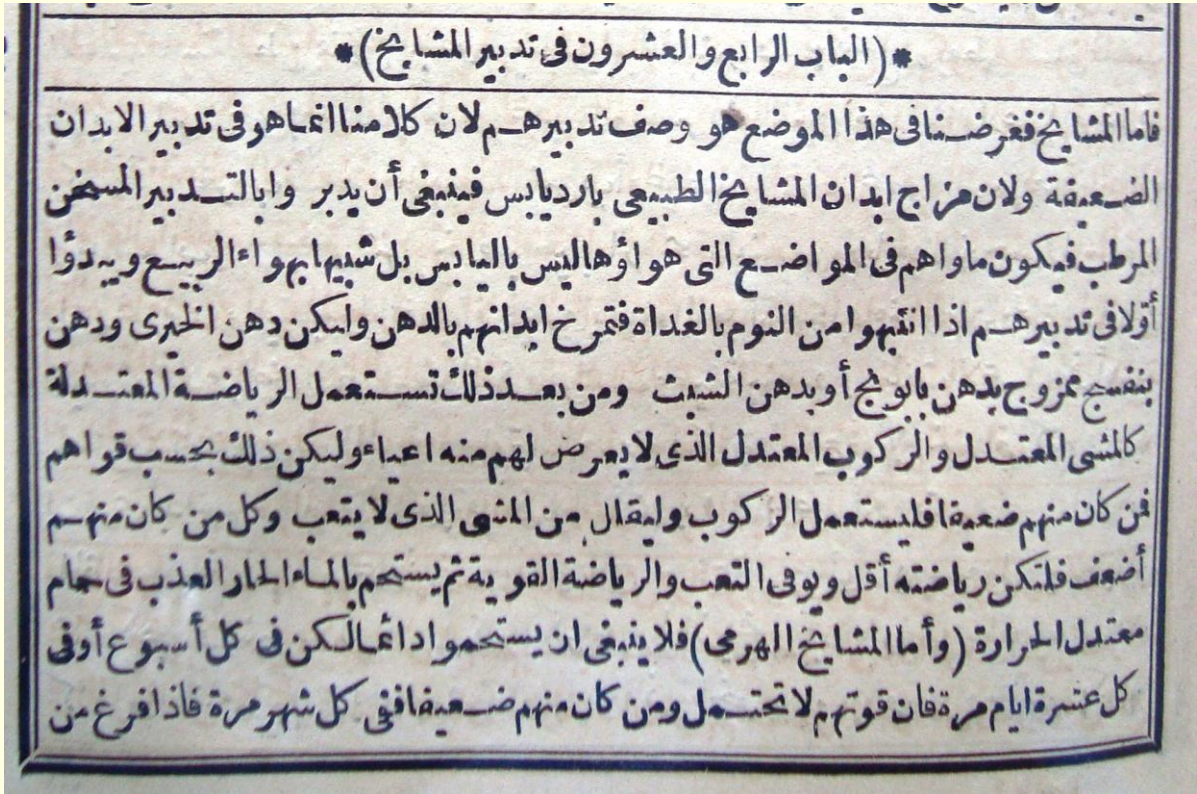 *(الباب الرابع والعشرون فى تدبير المشايخ)*
فاما المشايخ فغرضنا فى هذا الموضع هو وصف تدبيرهم لان كلامنا انما هو فى تدبير الابدان
الضعيفة ولان مزاج ابدان المشايخ الطبيعى بارد يابس فينبغى أن يدبر وا بالتدبير المسخن
المرطب فيكون ماواهم فى المواضع التى هواؤها ليس باليابس بل شبيها بهواء الربيع ويبدؤا
أولا فى تدبيرهم اذا انتبهوا من النوم بالغداة فتمرخ ابدانهم بالدهن وليكن دهن الخيرى ودهن
بنفسج ممزوج بدهن بابونج أو بدهن الشبث ومن بعد ذلك تستعمل الرياضة المعتدلة
كالمشى المعتدل والركوب المعتدل الذى لا يعرض لهم منه اعياء وليكن ذلك بحسب قواهم
فمن كان منهم ضعيفا فليستعمل الركوب وليقال من المشى الذى لا يتعب وكل من كان منهم
أضعف فلتكن رياضته أقل ويوفى التعب والرياضة القوية ثم يستحم بالماء الحار العذب فى حمام
معتدل الحرارة (وأما المشايخ الهرمى) فلا ينبغى ان يستحموا دائما لكن فى كل أسبوع أوفى
كل عشرة ايام مرة فان قوتهم لا تحتمل ومن كان منهم ضعيفا ففى كل شهر مرة فاذا فرغ من